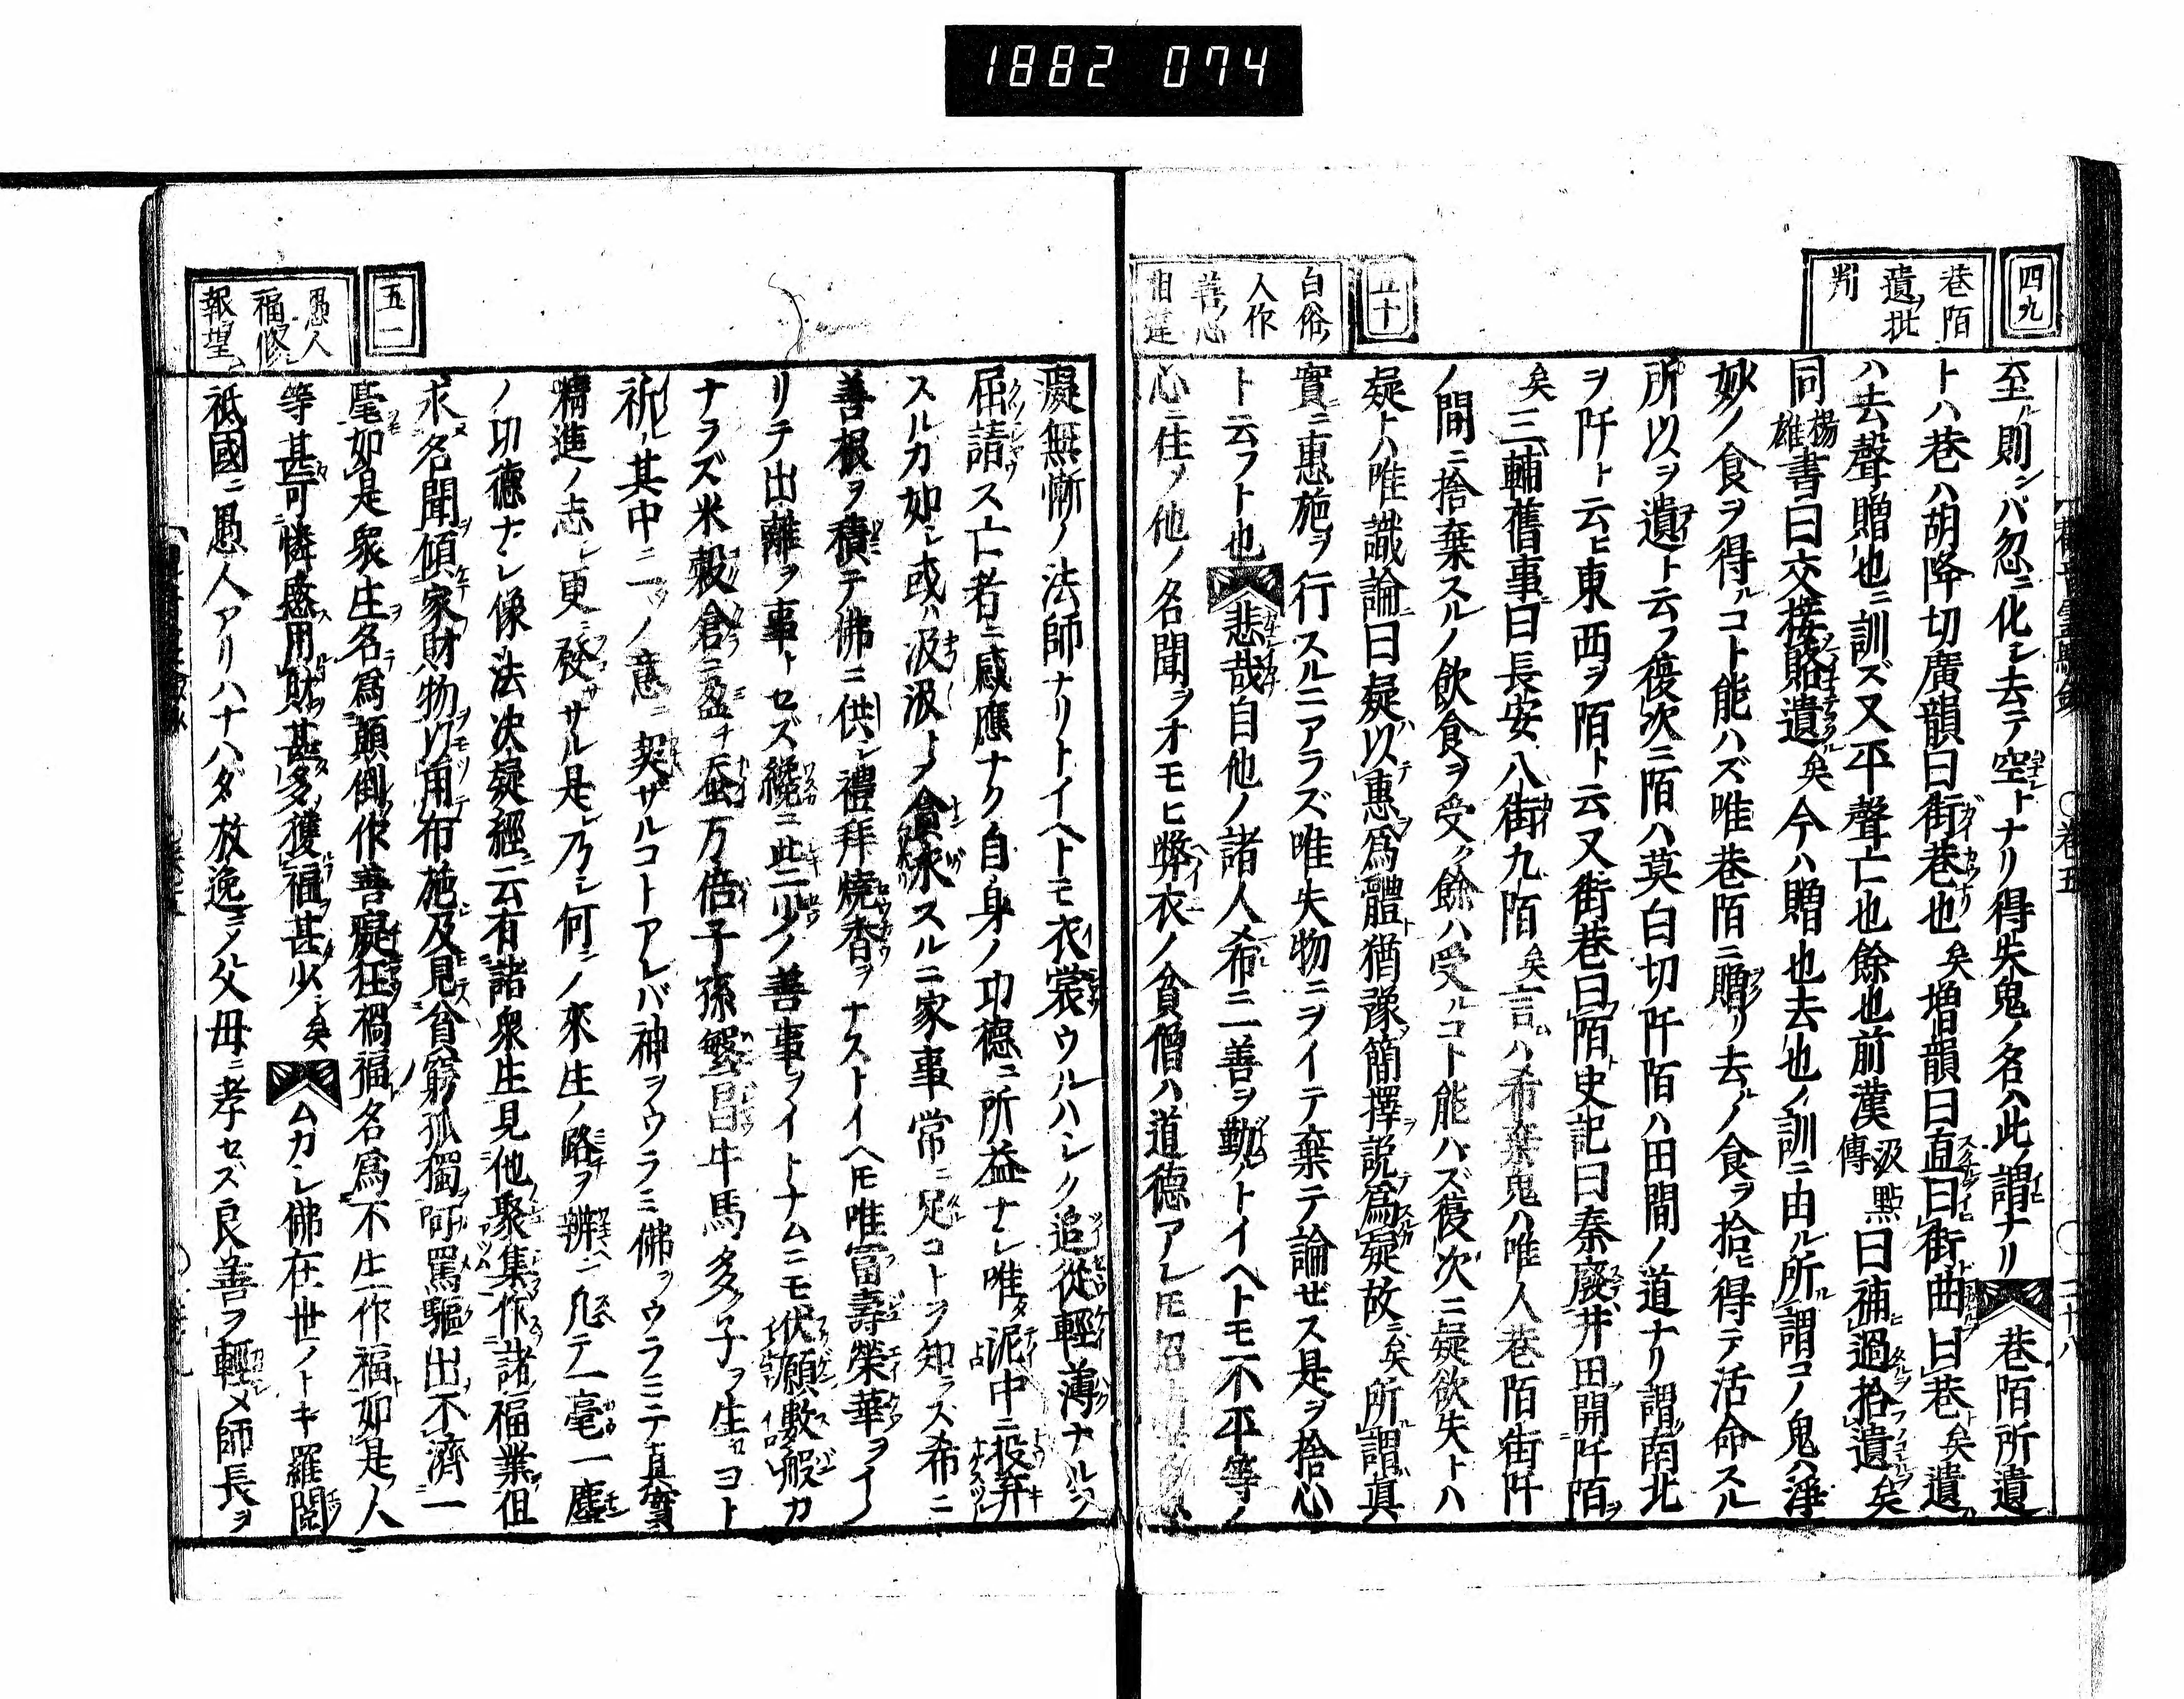 1882 074
四九
巷陌
遺ヲ批
判
至ル則ンバ忽ニ化シ去テ空トナリ得失鬼ノ名ハ此ノ謂ナリ 巷陌所遺
トハ巷ハ胡降切廣韻曰街巷也矣増韻曰直曰街曲曰巷矣遺
ハ去聲贈也ニ訓ズ又平聲亡也餘也前漢汲黯傳曰補過拾遺矣
同楊雄書曰交接賂遺矣今ハ贈也去也ノ訓ニ由ル所謂コノ鬼ハ淨
妙ノ食ヲ得ルコト能ハズ唯巷陌ニ贈リ去ルノ食ヲ拾ヒ得テ活命スル
所以ヲ遺ト云フ復次ニ陌ハ莫白切阡陌ハ田間ノ道ナリ謂南北
ヲ阡ト云ヒ東西ヲ陌ト云又街巷曰陌史記曰秦廢井田開阡陌
矣三輔舊事曰長安八街九陌矣言ハ希棄鬼ハ唯人巷陌街阡
ノ間ニ捨棄スルノ飲食ヲ受ク餘ハ受ルコト能ハズ復次ニ疑欲失トハ
疑トハ唯識論曰疑以惠爲體猶豫簡擇説爲疑故ニ矣所謂眞
實ニ惠施ヲ行スルニアラズ唯失物ニヲイテ棄テ論ゼス是ヲ捨心
ト云フト也 悲哉自他ノ諸人希ニ一善ヲ勤ルトイヘトモ不平等ノ
心ニ住ノ他ノ名聞ヲオモヒ弊衣ノ貧僧ハ道德アレトモ
五十
白俗
人作
善ノ心
相違
凝無慚ノ法師ナリトイヘトモ衣裳ウルハシク追從輕薄ナルヲ
屈請ス亡者ニ感應ナク自身ノ功德ニ所益ナシ唯泥中ニ投弃
スルカ如シ或ハ汲汲トノ貪求スルニ家事常ニ足コトヲ知ラズ希ニ
善根ヲ積テ佛ニ供シ禮拜燒香ヲナストイヘトモ唯富壽榮華ヲイノ
リテ出離ヲ事トセズ纔ニ些少ノ善事ヲイトナムニモ伏願數般カ
ナラズ米穀倉ニ盈チ蚕万倍子孫繁昌牛馬多ク子ヲ生ヨト
祈ル其中ニ一ツノ意ニ契サルコトアレバ神ヲウラミ佛ヲウラミテ眞實ヲ
精進ノ志シ更ニ發サザル是レ乃シ何ニノ來生ノ路ヲ辨ヘン凡テ一毫一塵
ノ功德ナシ像法決疑經ニ云有諸衆生見他聚集作諸福業但
求名聞傾家財物以用布施及見貧窮孤獨呵罵驅出不濟一
毫如是衆生名爲顛倒作善癡狂禍福名爲不生作福如是人
等甚可憐愍用財甚多獲福甚少シ矣 ムカシ佛在世ノトキ羅閲
祗國ニ愚人アリハナハダ放逸ニノ父母ニ孝セズ良善ヲ輕メ師長ヲ
五一
愚人
福修
報望